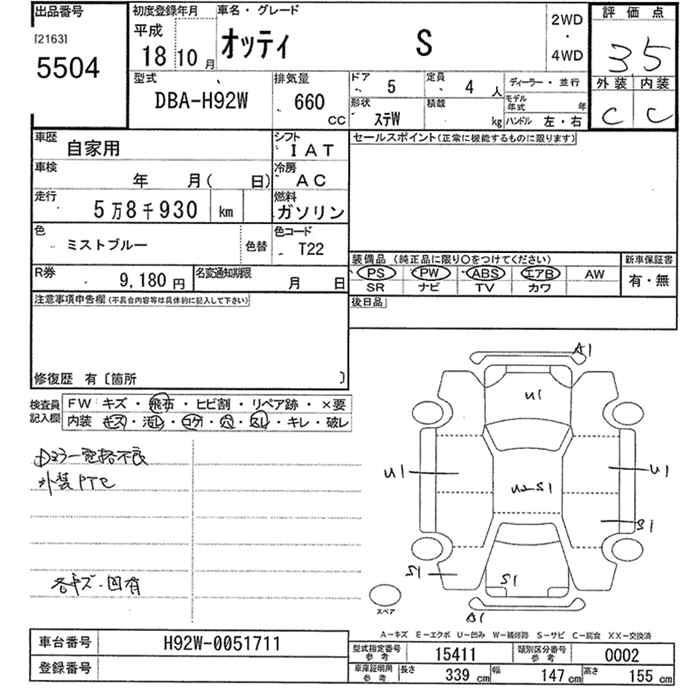 出品番号
[2163]
5504
初度登録年月
平成
18 10 月
車名・グレード
オッティ S
2WD
・
4WD
評価点
3 5
外装 内装
C C
型式
DBA-H92W
排気量
660
CC
ドア 5
定員 4 人
ディーラー・並行
形状 ステW
積載 kg
モデル年式 年
ハンドル 左・右
車歴
自家用
シフト
I A T
車検
年 月( 日)
冷房
A C
走行
5万8千930 km
燃料
ガソリン
色
ミストブルー
色替
色コード
T22
R券
9,180 円
名変通知期限
月 日
セールスポイント(正常に機能するものに限ります)
装備品 (純正品に限り○をつけてください)
新車保証書
PS PW ABS エアB AW
有・無
SR ナビ TV カワ
後日品
注意事項申告欄(不具合内容等は具体的に記入して下さい)
修復歴 有〔箇所 〕
検査員
記入欄
FW キズ・飛石・ヒビ割・リペア跡・×要
内装 キズ・汚レ・コゲ・穴・スレ・キレ・破レ
Dミラー電格不良
外装PTC
各キズ・凹有
A1
U1
U1
U1
U2 S1
S1
S1
S1
B1
スペア
A−キズ E−エクボ U−凹み W−補修跡 S−サビ C−腐食 XX−交換済
車台番号
H92W-0051711
登録番号
型式指定番号
参考
15411
類別区分番号
参考
0002
車庫証明用
参考
長さ 339 cm
幅 147 cm
高さ 155 cm